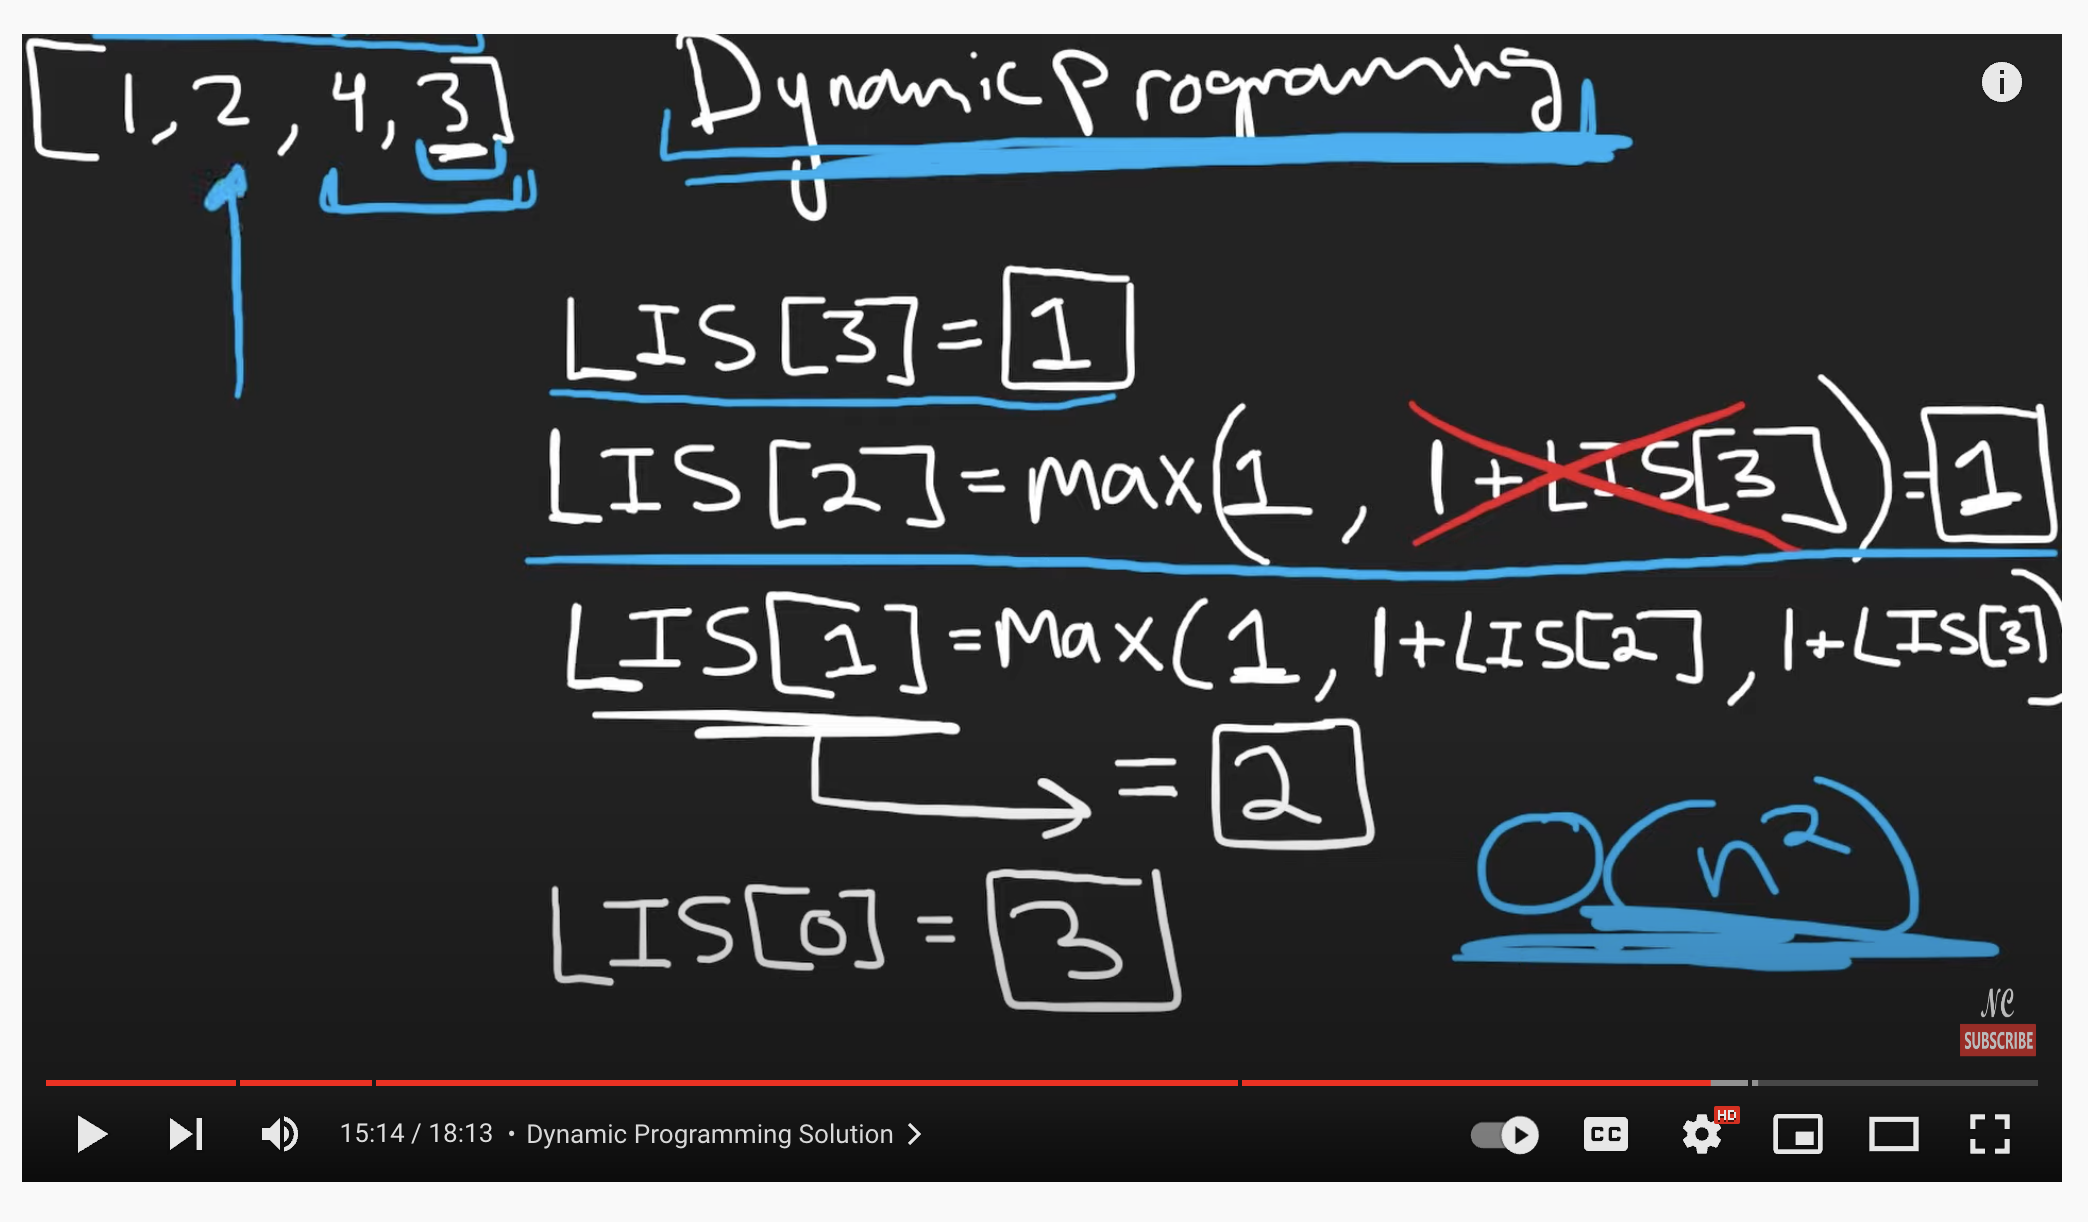 [ 1, 2, 4, 3 ]
Dynamic Programing
LIS[3] = 1
LIS[2] = max(1, 1+LIS[3]) = 1
LIS[1] = Max(1, 1+LIS[2], 1+LIS[3])
= 2
LIS[0] = 3
O(n²)
NC
SUBSCRIBE
15:14 / 18:13 • Dynamic Programming Solution
CC
HD